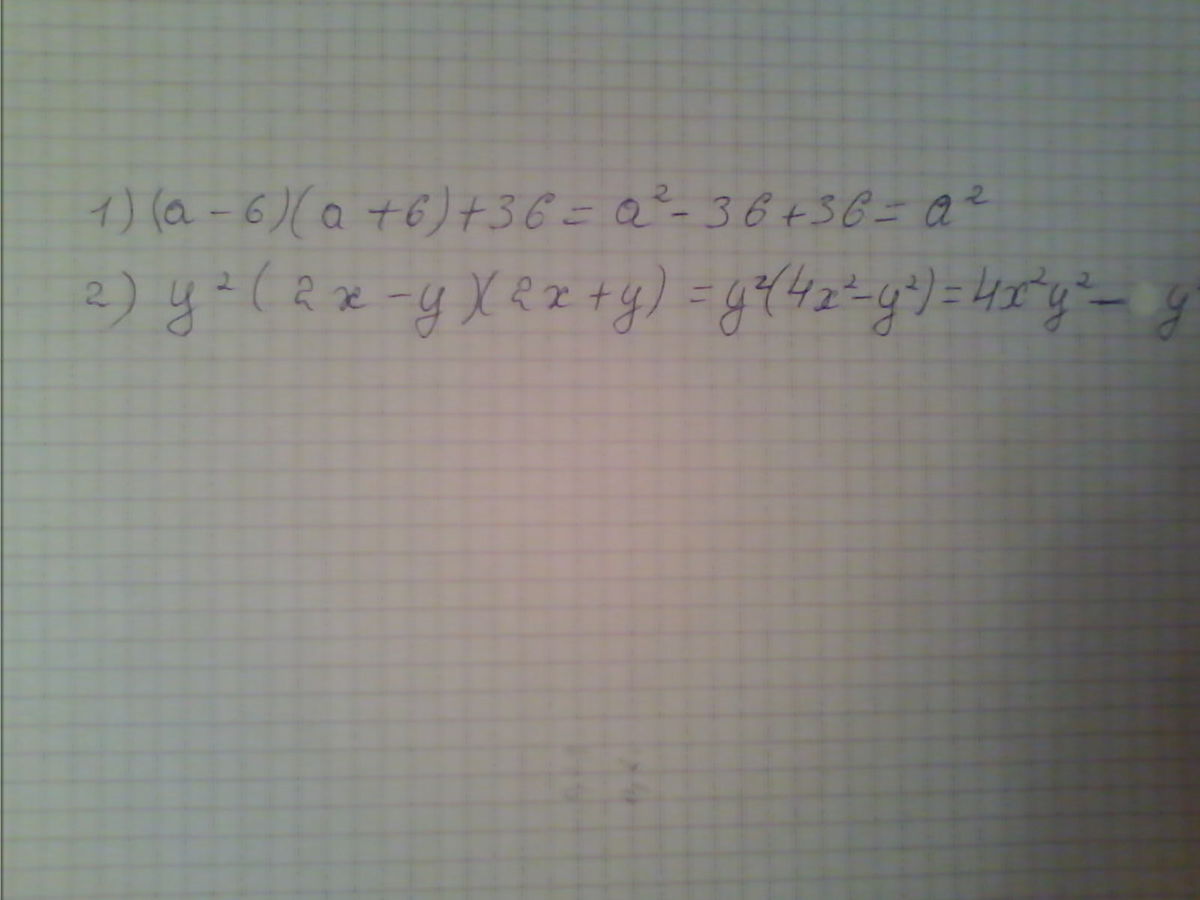 1) (a - 6)(a + 6) + 36 = a² - 36 + 36 = a²
2) y² (2x - y)(2x + y) = y²(4x² - y²) = 4x²y² - y